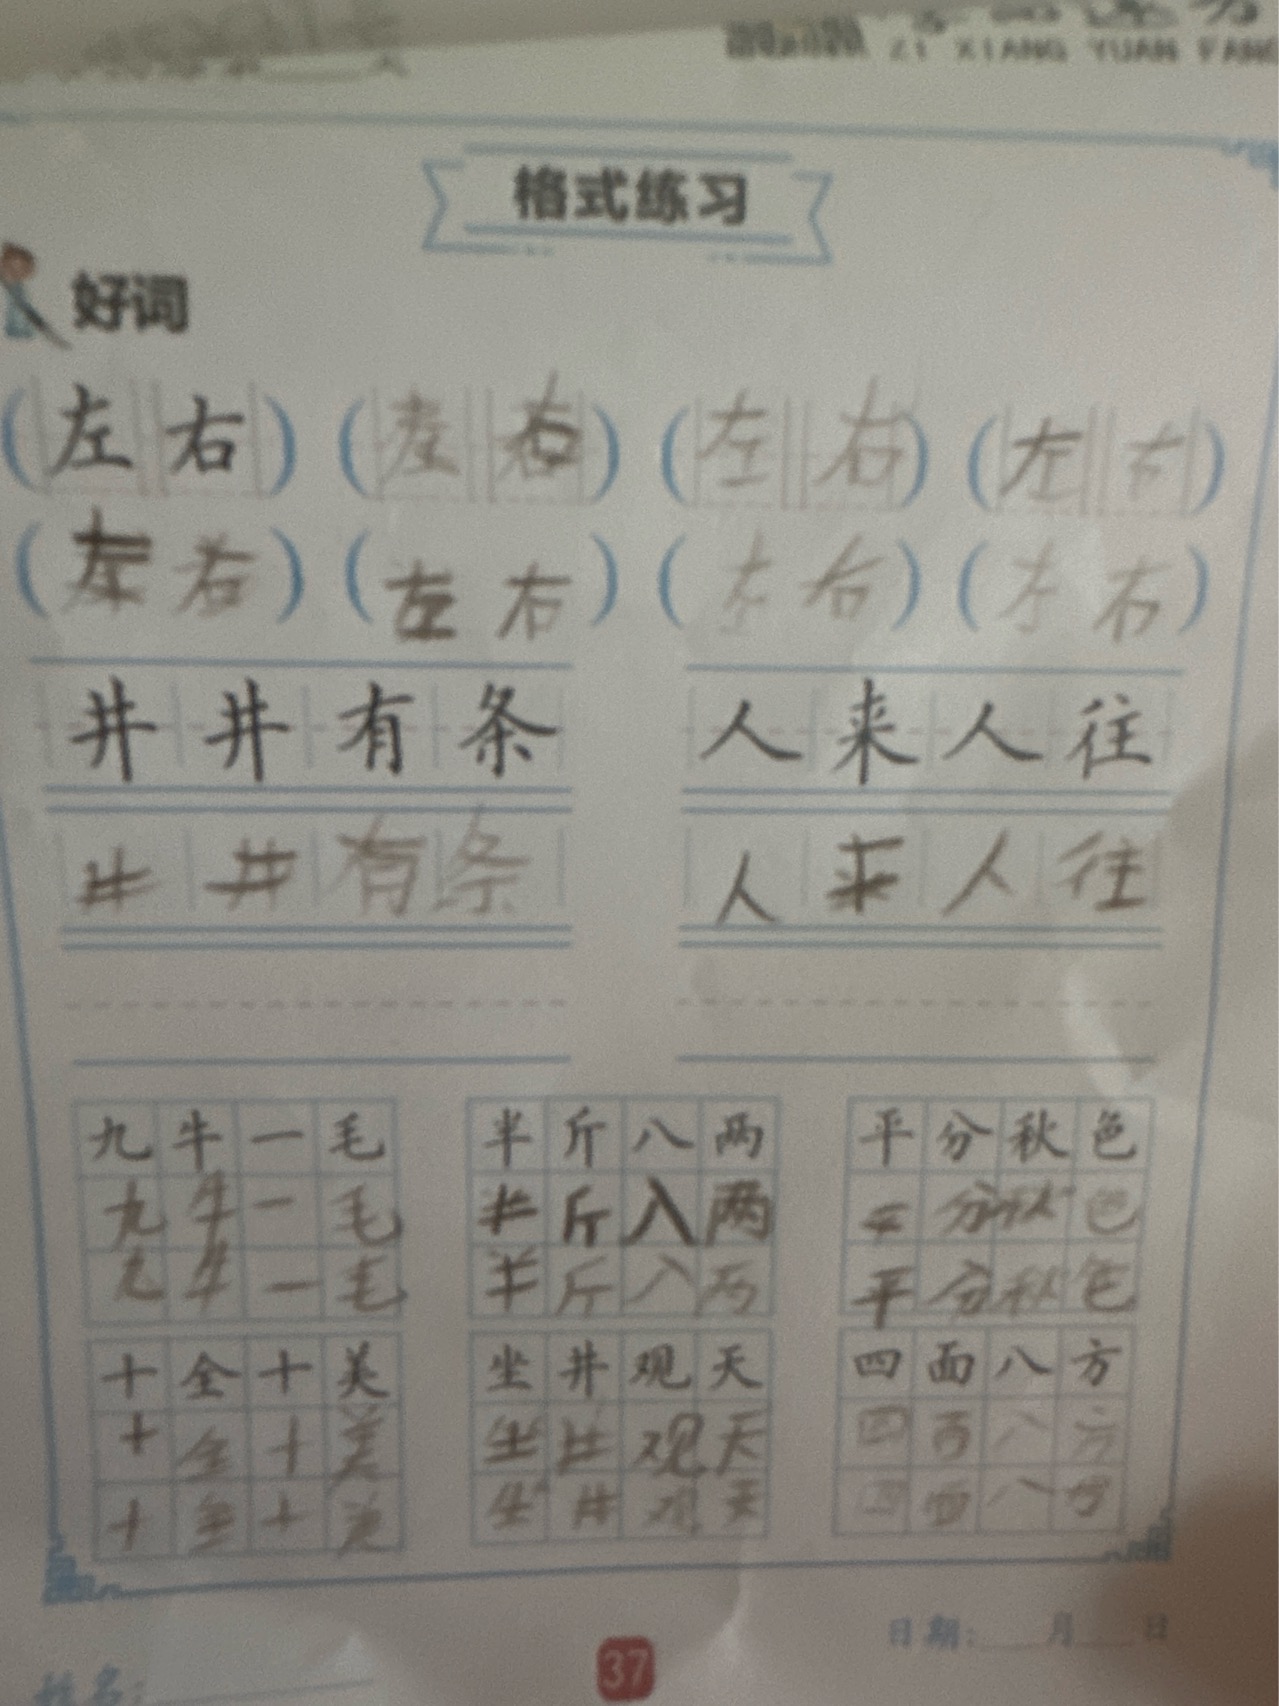 ZI XIANG YUAN FANG
格式练习
好词
(左右) (左右) (左右) (左右)
(左右) (左右) (左右) (左右)
井井有条 人来人往
井井有条 人来人往
九牛一毛 半斤八两 平分秋色
九牛一毛 半斤八两 平分秋色
九牛一毛 半斤八两 平分秋色
十全十美 坐井观天 四面八方
十全十美 坐井观天 四面八方
十全十美 坐井观天 四面八方
日期:___月___日
37
姓名: